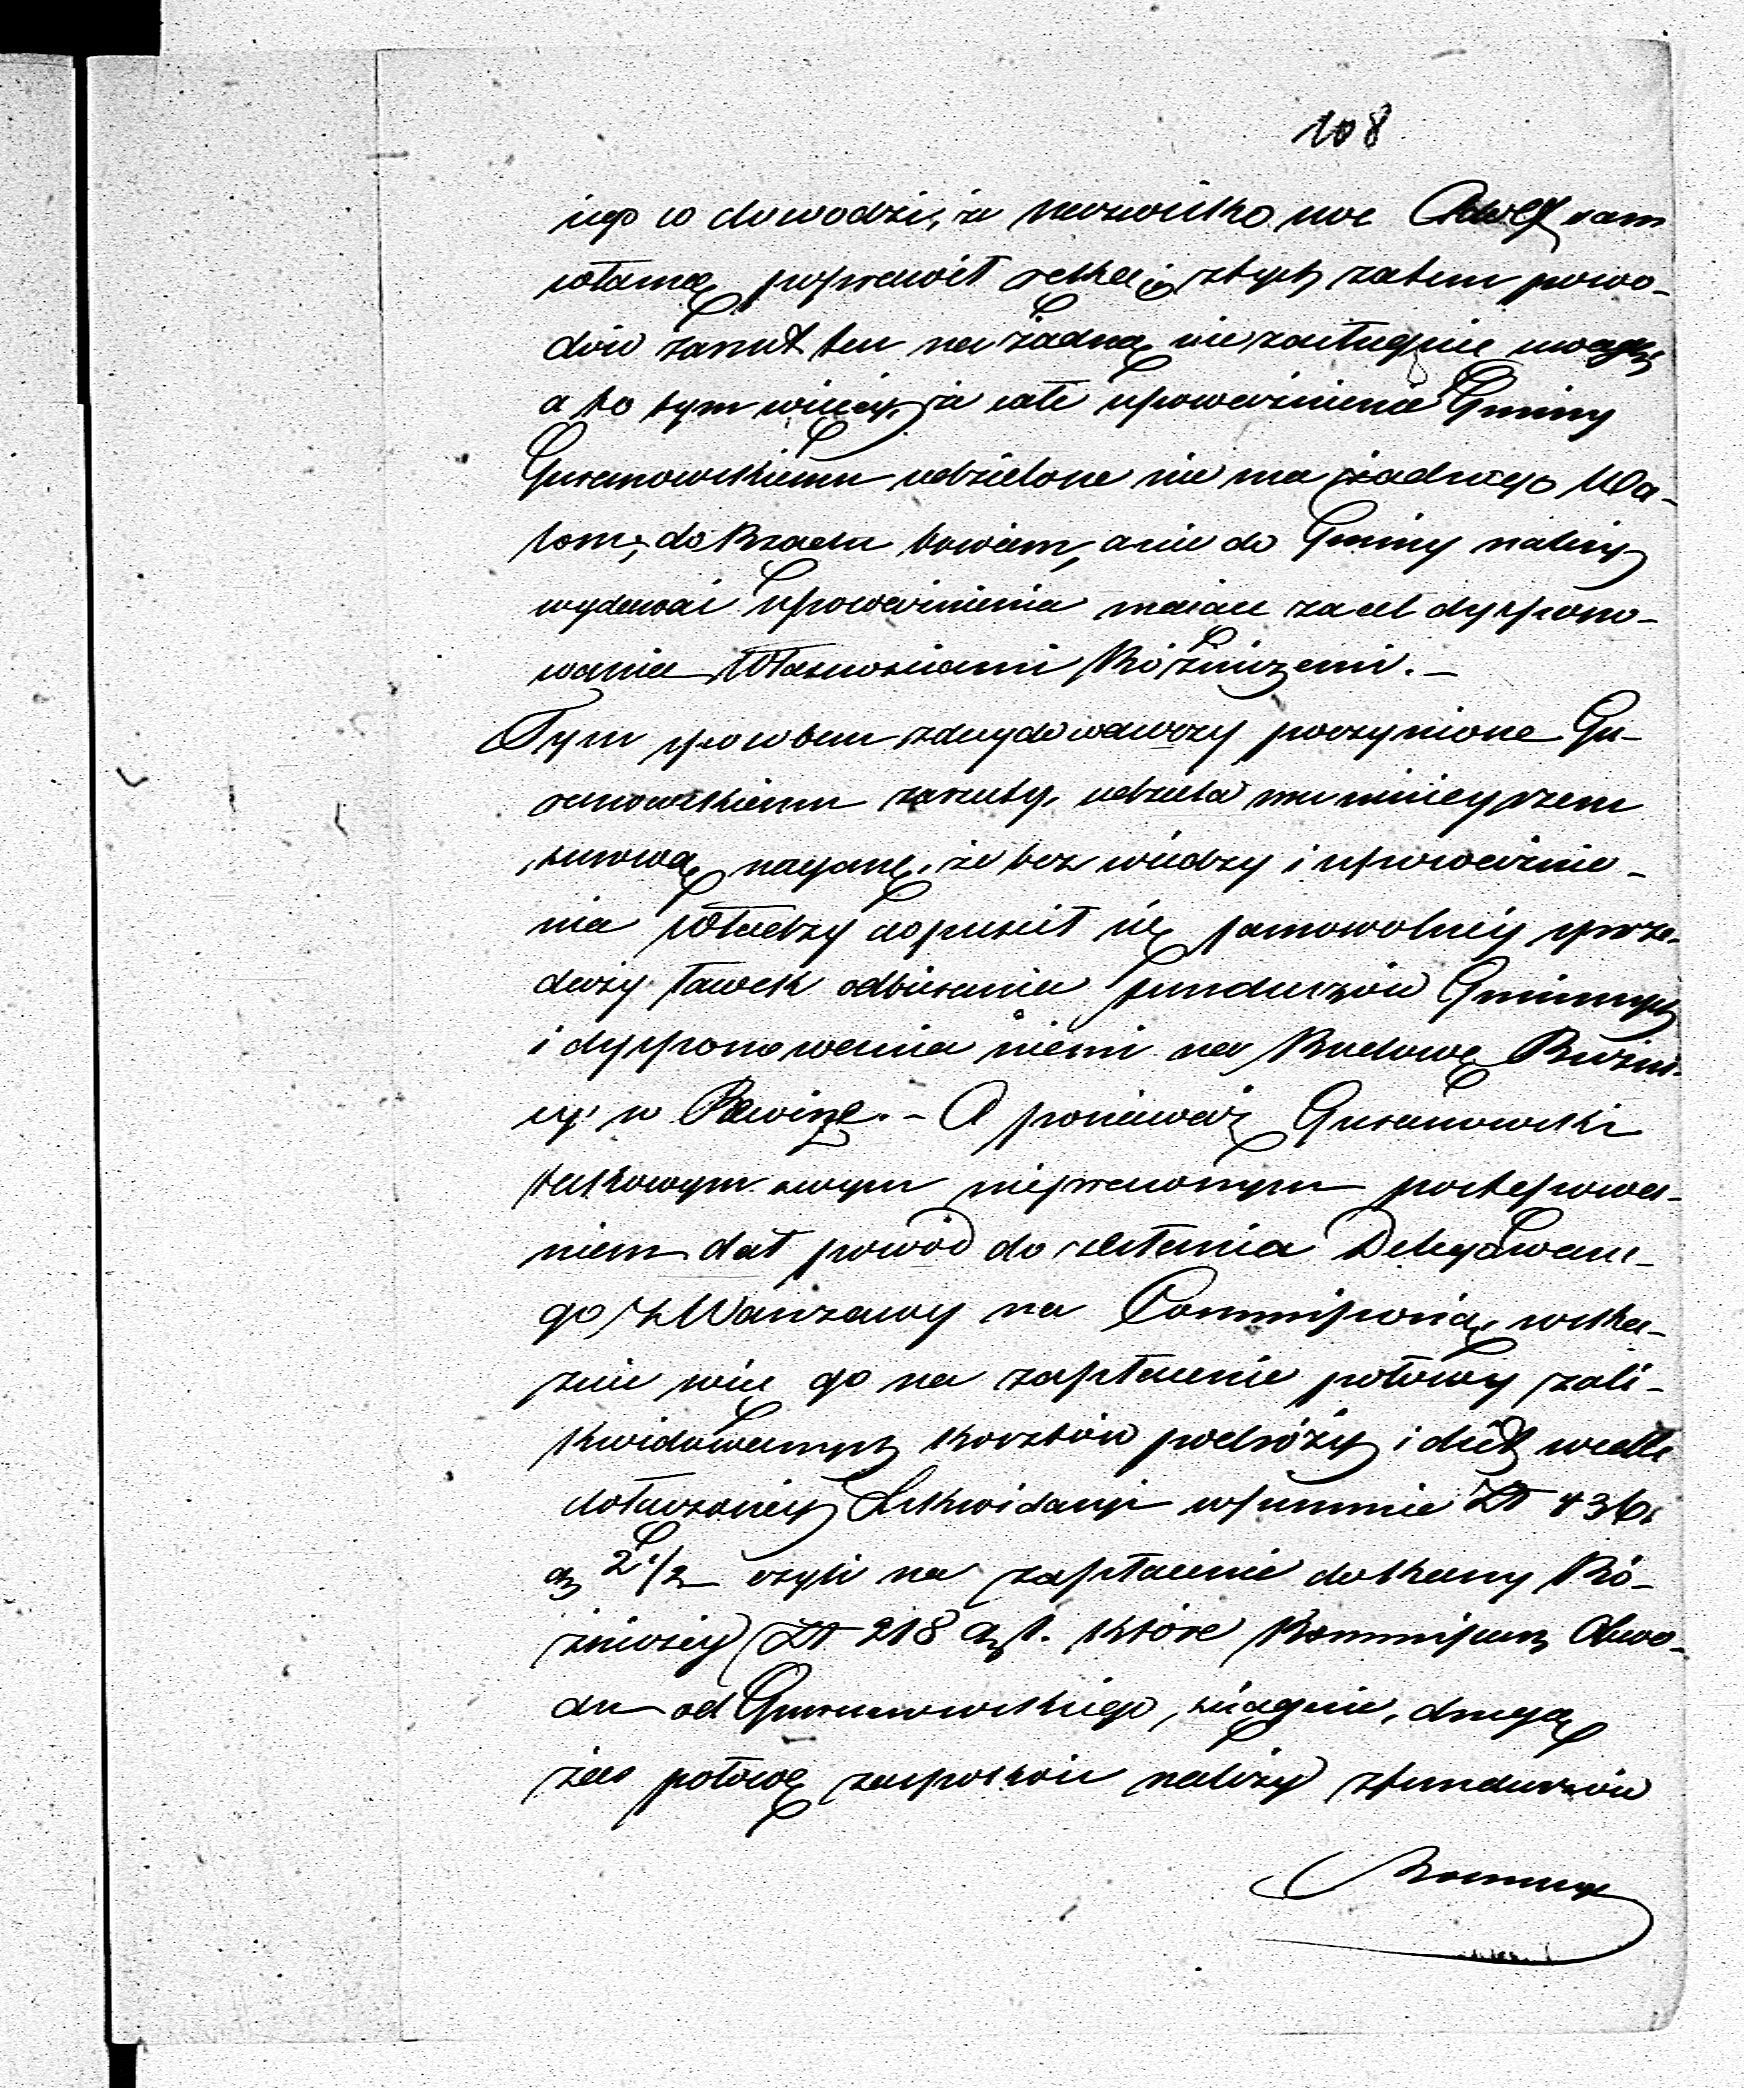 108
iego co dowodzi, że nazwisko moc sam
własną poprawił ręką; z tych zatem powo-
dów zarzut ten na żadną nie zasługuje uwagę
a to tym więcej, że całe upoważnienie Gminy
Guranowskiemu udzielone nie ma żadnego Wa-
loru, do Rządu bowiem, a nie do Gminy należy
wydawać upoważnienia maiące za cel dyspono-
wanie Własnościami Bóżniczemi. -
Tym sposobem zdecydowawszy poczynione Gu-
ranowskiemu zarzuty, udziela mu ninieyszem
surową naganę, że bez wiedzy i upoważnie-
nia Władzy dopuścił się samowolney sprze-
daży ławek odbierania funduszów Gminnych
i dysponowania niemi na Budowę Bużni-
cy w . - A ponieważ Guranowski
takowym swym nieprawnym postępowa-
niem dał powód do zesłania Delegowane-
go z Warszawy na Kommissyią, wska-
zuie więc go na zapłacenie połowy zali-
kwidowanych kosztów podróży i diet wedle
dołączoney Likwidacyi w summie Zł 436
gr 2 1/2 czyli na zapłacenie do kassy Bó-
żniczey Zł 218 gr 1. które Kommissarz Obwo-
du od Guranowskiego, ściągnie, drugą
zaś połowę zaspokoić należy z funduszów